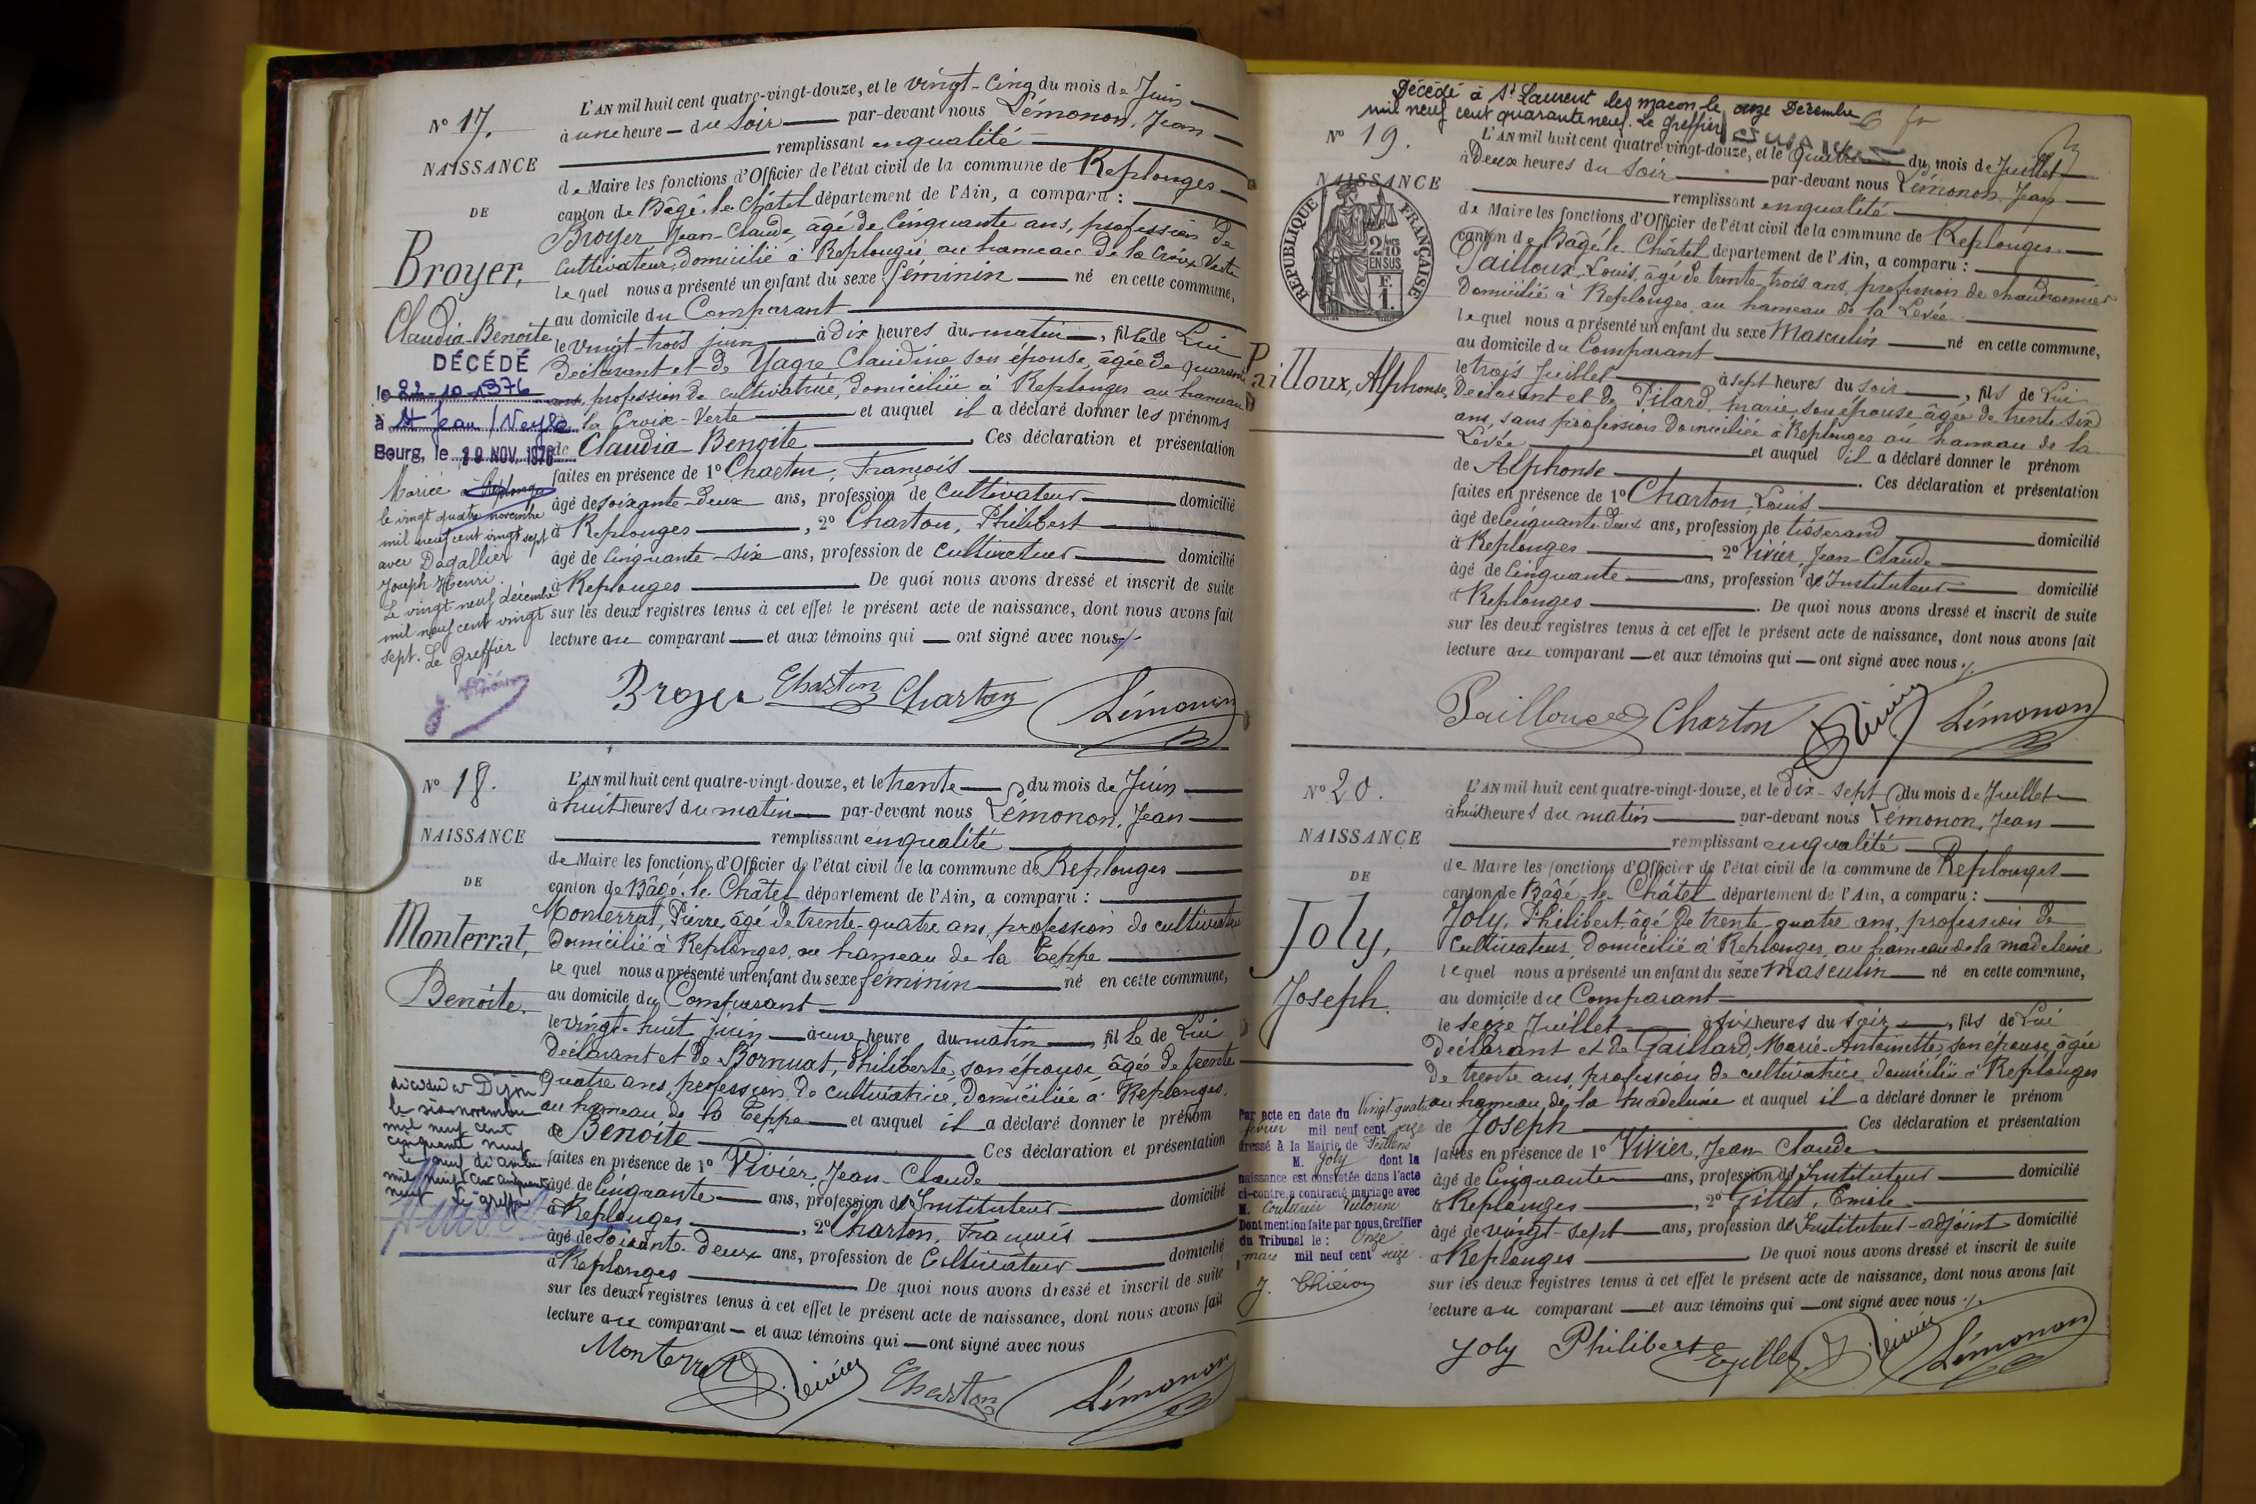 N° 17.
NAISSANCE
DE
Broyer,
Claudia-Benoite
DÉCÉDÉ
le 22-10-1976
à St Jean / Veyle
Bourg, le 29 NOV. 1976
Mariée à Replonges
le vingt quatre novembre
mil neuf cent vingt sept
avec Dagallier
Joseph Henri.
Le vingt-neuf décembre
mil neuf cent vingt
sept. Le Greffier
L'AN mil huit cent quatre-vingt-douze, et le vingt-cinq du mois de Juin
à une heure du soir par-devant nous Lémonon, Jean
remplissant en qualité
de Maire les fonctions d'Officier de l'état civil de la commune de Replonges
canton de Bagé-le-Châtel département de l'Ain, a comparu :
Broyer Jean-Claude, âgé de Cinquante ans, profession de
cultivateur, domicilié à Replonges au hameau de la Croix Verte
lequel nous a présenté un enfant du sexe féminin né en cette commune,
au domicile du Comparant
le vingt-trois juin à dix heures du matin, fille de Lui
Déclarant et de Yagre Claudine son épouse, âgée de quarante
ans, profession de cultivatrice, domiciliée à Replonges au hameau
de la Croix-Verte et auquel il a déclaré donner les prénoms
de Claudia-Benoite Ces déclaration et présentation
faites en présence de 1° Charton, François
âgé de soixante-deux ans, profession de cultivateur domicilié
à Replonges, 2° Charton, Philibert
âgé de Cinquante-six ans, profession de cultivateur domicilié
à Replonges De quoi nous avons dressé et inscrit de suite
sur les deux registres tenus à cet effet le présent acte de naissance, dont nous avons fait
lecture au comparant et aux témoins qui ont signé avec nous
Broyer Charton Charton Lémonon
N° 18.
NAISSANCE
DE
Monterrat,
Benoite.
Dijon
le six novembre
mil neuf cent
cinquante neuf
mil neuf cent cinquante
neuf Le greffier
L'AN mil huit cent quatre-vingt-douze, et le trente du mois de Juin
à huit heures du matin par-devant nous Lémonon, Jean
remplissant en qualité
de Maire les fonctions d'Officier de l'état civil de la commune de Replonges
canton de Bâgé-le-Châtel département de l'Ain, a comparu :
Monterrat, Pierre, âgé de trente-quatre ans, profession de cultivateur
domicilié à Replonges, au hameau de la Teppe
lequel nous a présenté un enfant du sexe féminin né en cette commune,
au domicile du Comparant
le vingt-huit juin à une heure du matin, fille de Lui
Déclarant et de Bornuat, Philiberte, son épouse, âgée de trente
quatre ans, profession de cultivatrice, domiciliée à Replonges,
au hameau de la Teppe et auquel il a déclaré donner le prénom
de Benoite Ces déclaration et présentation
faites en présence de 1° Vivier, Jean-Claude
âgé de Cinquante ans, profession d'Instituteur domicilié
à Replonges, 2° Charton, François
âgé de soixante-deux ans, profession de Cultivateur domicilié
à Replonges De quoi nous avons dressé et inscrit de suite
sur les deux registres tenus à cet effet le présent acte de naissance, dont nous avons fait
lecture au comparant et aux témoins qui ont signé avec nous
Monterrat Vivier Charton Lémonon
Décédé à St Laurent les macon le onze Décembre
mil neuf cent quarante neuf. Le Greffier
N° 19.
NAISSANCE
RÉPUBLIQUE FRANÇAISE
2/10
EN SUS
F.
1
Pailloux, Alphonse,
L'AN mil huit cent quatre-vingt-douze, et le quatre du mois de Juillet
à Deux heures du soir par-devant nous Lémonon, Jean
remplissant en qualité
de Maire les fonctions d'Officier de l'état civil de la commune de Replonges
canton de Bâgé-le-Châtel département de l'Ain, a comparu :
Pailloux, Louis, âgé de trente-trois ans, profession de chaudronnier
Domicilié à Replonges au hameau de la Levée
lequel nous a présenté un enfant du sexe Masculin né en cette commune,
au domicile du Comparant
le trois Juillet à sept heures du soir, fils de Lui
Déclarant et de Pilard, marie son épouse âgée de trente-six
ans, sans profession domiciliée à Replonges au hameau de la
Levée et auquel il a déclaré donner le prénom
de Alphonse. Ces déclaration et présentation
faites en présence de 1° Charton, Louis
âgé de Cinquante-deux ans, profession de tisserand domicilié
à Replonges 2° Vivier, Jean-Claude
âgé de Cinquante ans, profession d'Instituteur domicilié
à Replonges. De quoi nous avons dressé et inscrit de suite
sur les deux registres tenus à cet effet le présent acte de naissance, dont nous avons fait
lecture au comparant et aux témoins qui ont signé avec nous
Pailloux Charton Vivier Lémonon
N° 20.
NAISSANCE
DE
Joly,
Joseph.
Par acte en date du Vingt quatre
février mil neuf cent seize
dressé à la Mairie de
M. Joly dont la
naissance est constatée dans l'acte
ci-contre a contracté mariage avec
M.
Dont mention faite par nous, Greffier
du Tribunal le : Onze
mars mil neuf cent seize.
L'AN mil huit cent quatre-vingt-douze, et le dix-sept du mois de Juillet
à huit heures du matin par-devant nous Lémonon, Jean
remplissant en qualité
de Maire les fonctions d'Officier de l'état civil de la commune de Replonges
canton de Bâgé-le-Châtel département de l'Ain, a comparu :
Joly, Philibert âgé de trente-quatre ans, profession de
Cultivateur, domicilié à Replonges, au hameau de la madeleine
lequel nous a présenté un enfant du sexe masculin né en cette commune,
au domicile du Comparant
le seize Juillet à six heures du soir, fils de Lui
Déclarant et de Gaillard, Marie-Antoinette, son épouse, âgée
de trente ans, profession de cultivatrice domiciliée à Replonges
au hameau de la madeleine et auquel il a déclaré donner le prénom
de Joseph Ces déclaration et présentation
faites en présence de 1° Vivier, Jean Claude
âgé de Cinquante ans, profession d'Instituteur domicilié
à Replonges, 2° Gillet, Emile
âgé de vingt-sept ans, profession d'Instituteur-adjoint domicilié
à Replonges De quoi nous avons dressé et inscrit de suite
sur les deux registres tenus à cet effet le présent acte de naissance, dont nous avons fait
lecture au comparant et aux témoins qui ont signé avec nous
Joly Philibert Gillet Vivier Lémonon